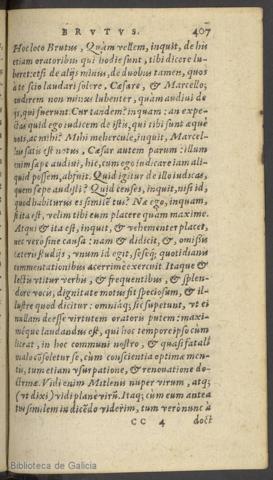 BRVTVS. 407
Hoc loco Brutus, Quàm vellem, inquit, de his
etiam oratoribus qui hodie sunt, tibi dicere lu-
beret: et si de alijs minus, de duobus tamen, quos
à te scio laudari solere, Cæsare, & Marcello,
audirem non minus lubenter, quàm audiui de
ijs, qui fuerunt. Cur tandem? inquam: an expe-
ctas quid ego iudicem de istis, qui tibi sunt æquè
noti, ac mihi? Mihi mehercule, inquit, Marcel-
lus satis est notus, Cæsar autem parum: illum
enim sæpe audiui, hic, cum ego iudicare iam ali-
quid possem, abfuit. Quid igitur de illo iudicas,
quem sæpe audisti? Quid censes, inquit, nisi id,
quod habiturus es similē tui? Næ ego, inquam,
si ita est, velim tibi eum placere quàm maxime.
Atqui & ita est, inquit, & vehementer placet,
nec vero sine causa: nam & didicit, &, omissis
ceteris studijs, vnum id egit, seseq; quotidianis
commentationibus acerrime exercuit. Itaque &
lectis vtitur verbis, & frequentibus, & splen-
dore vocis, dignitate motus fit speciosum, & il-
lustre quod dicitur: omniáq; sic suppetunt, vt ei
nullam deesse virtutem oratoris putem: maxi-
méque laudandus est, qui hoc tempore ipso cùm
liceat, in hoc communi nostro, & quasi fatali
malo cōsoletur se, cùm conscientia optimæ men-
tis, tum etiam vsurpatione, & renouatione do-
ctrinæ. Vidi enim Mitlenis nuper virum, atq;
(vt dixi) vidi planè virū. Itaq; cùm eum antea
tui similem in dicēdo viderim, tum verò nunc à
CC 4 doct
Biblioteca de Galicia